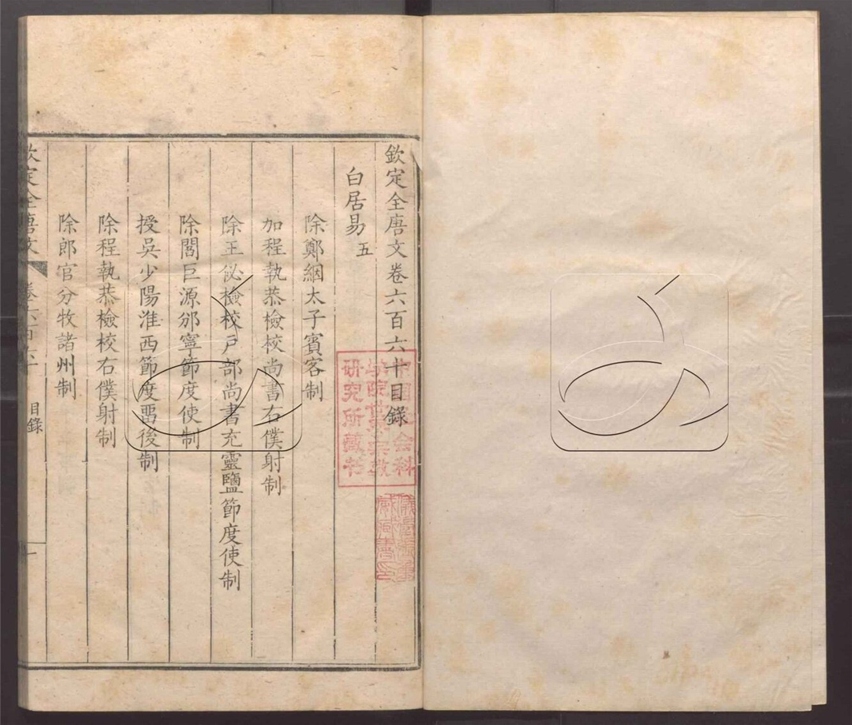 欽定全唐文卷六百六十目錄
白居易 五
除鄭絪太子賓客制
加程執恭檢校尚書右僕射制
除王佖檢校戸部尚書充靈鹽節度使制
除閻巨源邠寧節度使制
授吳少陽淮西節度畱後制
除程執恭檢校右僕射制
除郎官分牧諸州制
欽定全唐文 卷六百六十 目錄 一
研究所藏书